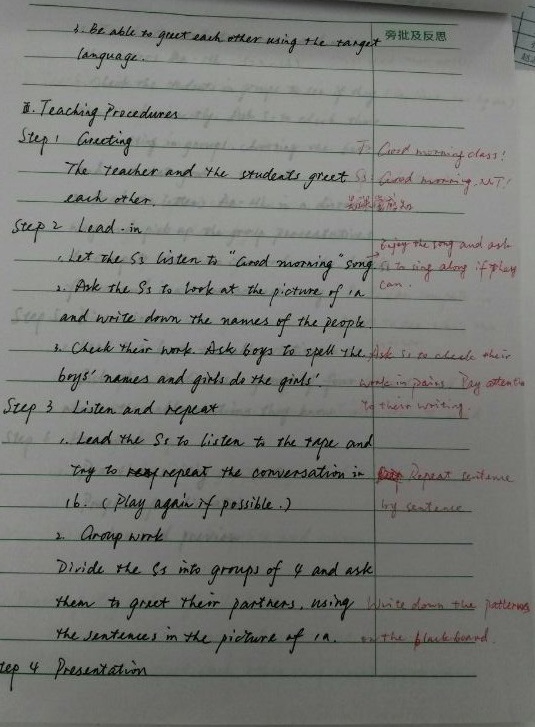 旁批及反思
3. Be able to greet each other using the target
language.
Ⅲ. Teaching Procedures
Step 1 Greeting
T: Good morning class!
The teacher and the students greet
Ss: Good morning, Mr T!
each other.
Step 2 Lead-in
Enjoy the song and ask
1. Let the Ss listen to "Good morning" song.
Ss to sing along if they
2. Ask the Ss to look at the picture of 1a
can.
and write down the names of the people.
3. Check their work. Ask boys to spell the
Ask Ss to check their
boys' names and girls do the girls'.
work in pairs. Pay attention
Step 3 Listen and repeat
to their writing.
1. Lead the Ss to listen to the tape and
try to repeat the conversation in
Repeat sentence
1b. (Play again if possible.)
by sentence
2. Group work
Divide the Ss into groups of 4 and ask
them to greet their partners, using
Write down the patterns
the sentences in the picture of 1a.
on the blackboard.
tep 4 Presentation